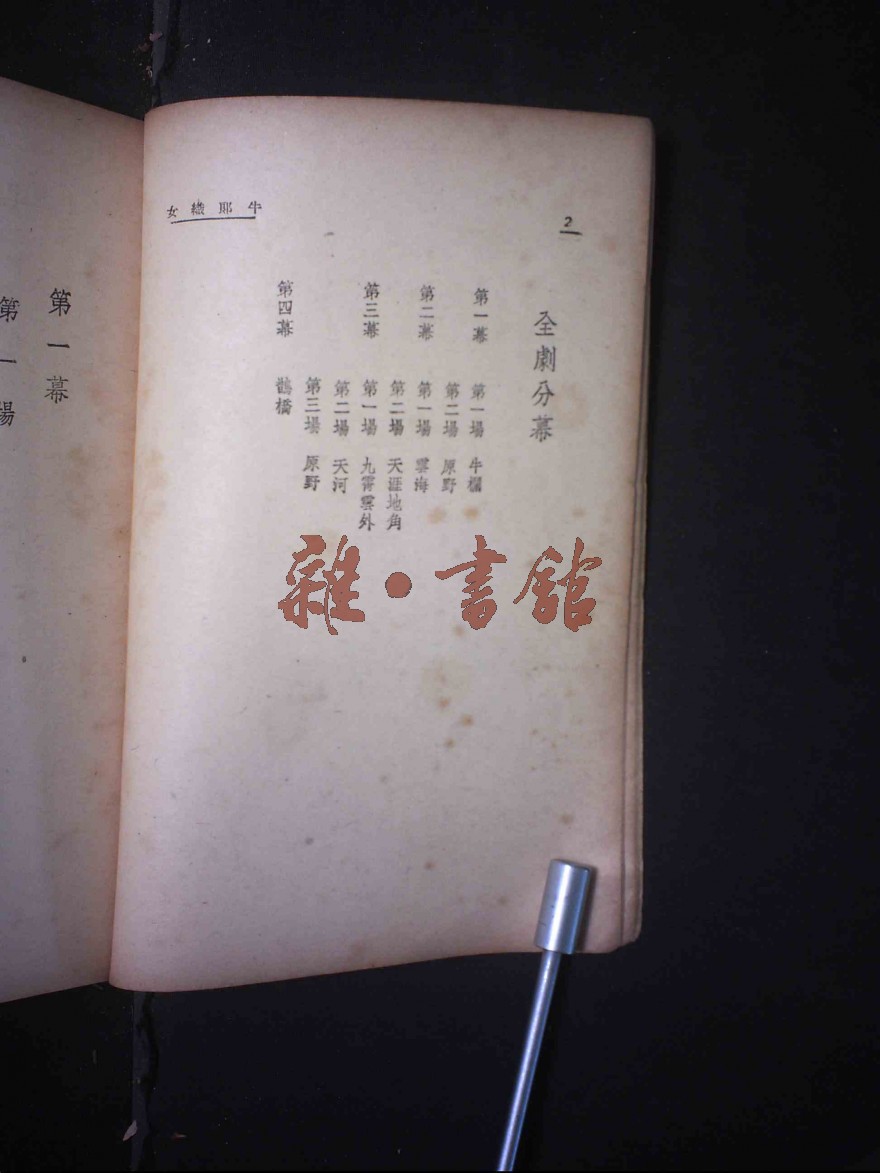 牛郎織女
2
全劇分幕
第一幕 第一場 牛欄
第二場 原野
第二幕 第一場 雲海
第二場 天涯地角
第三幕 第一場 九霄雲外
第二場 天河
第三場 原野
第四幕 鵲橋
第一幕
第一場
雜·書館